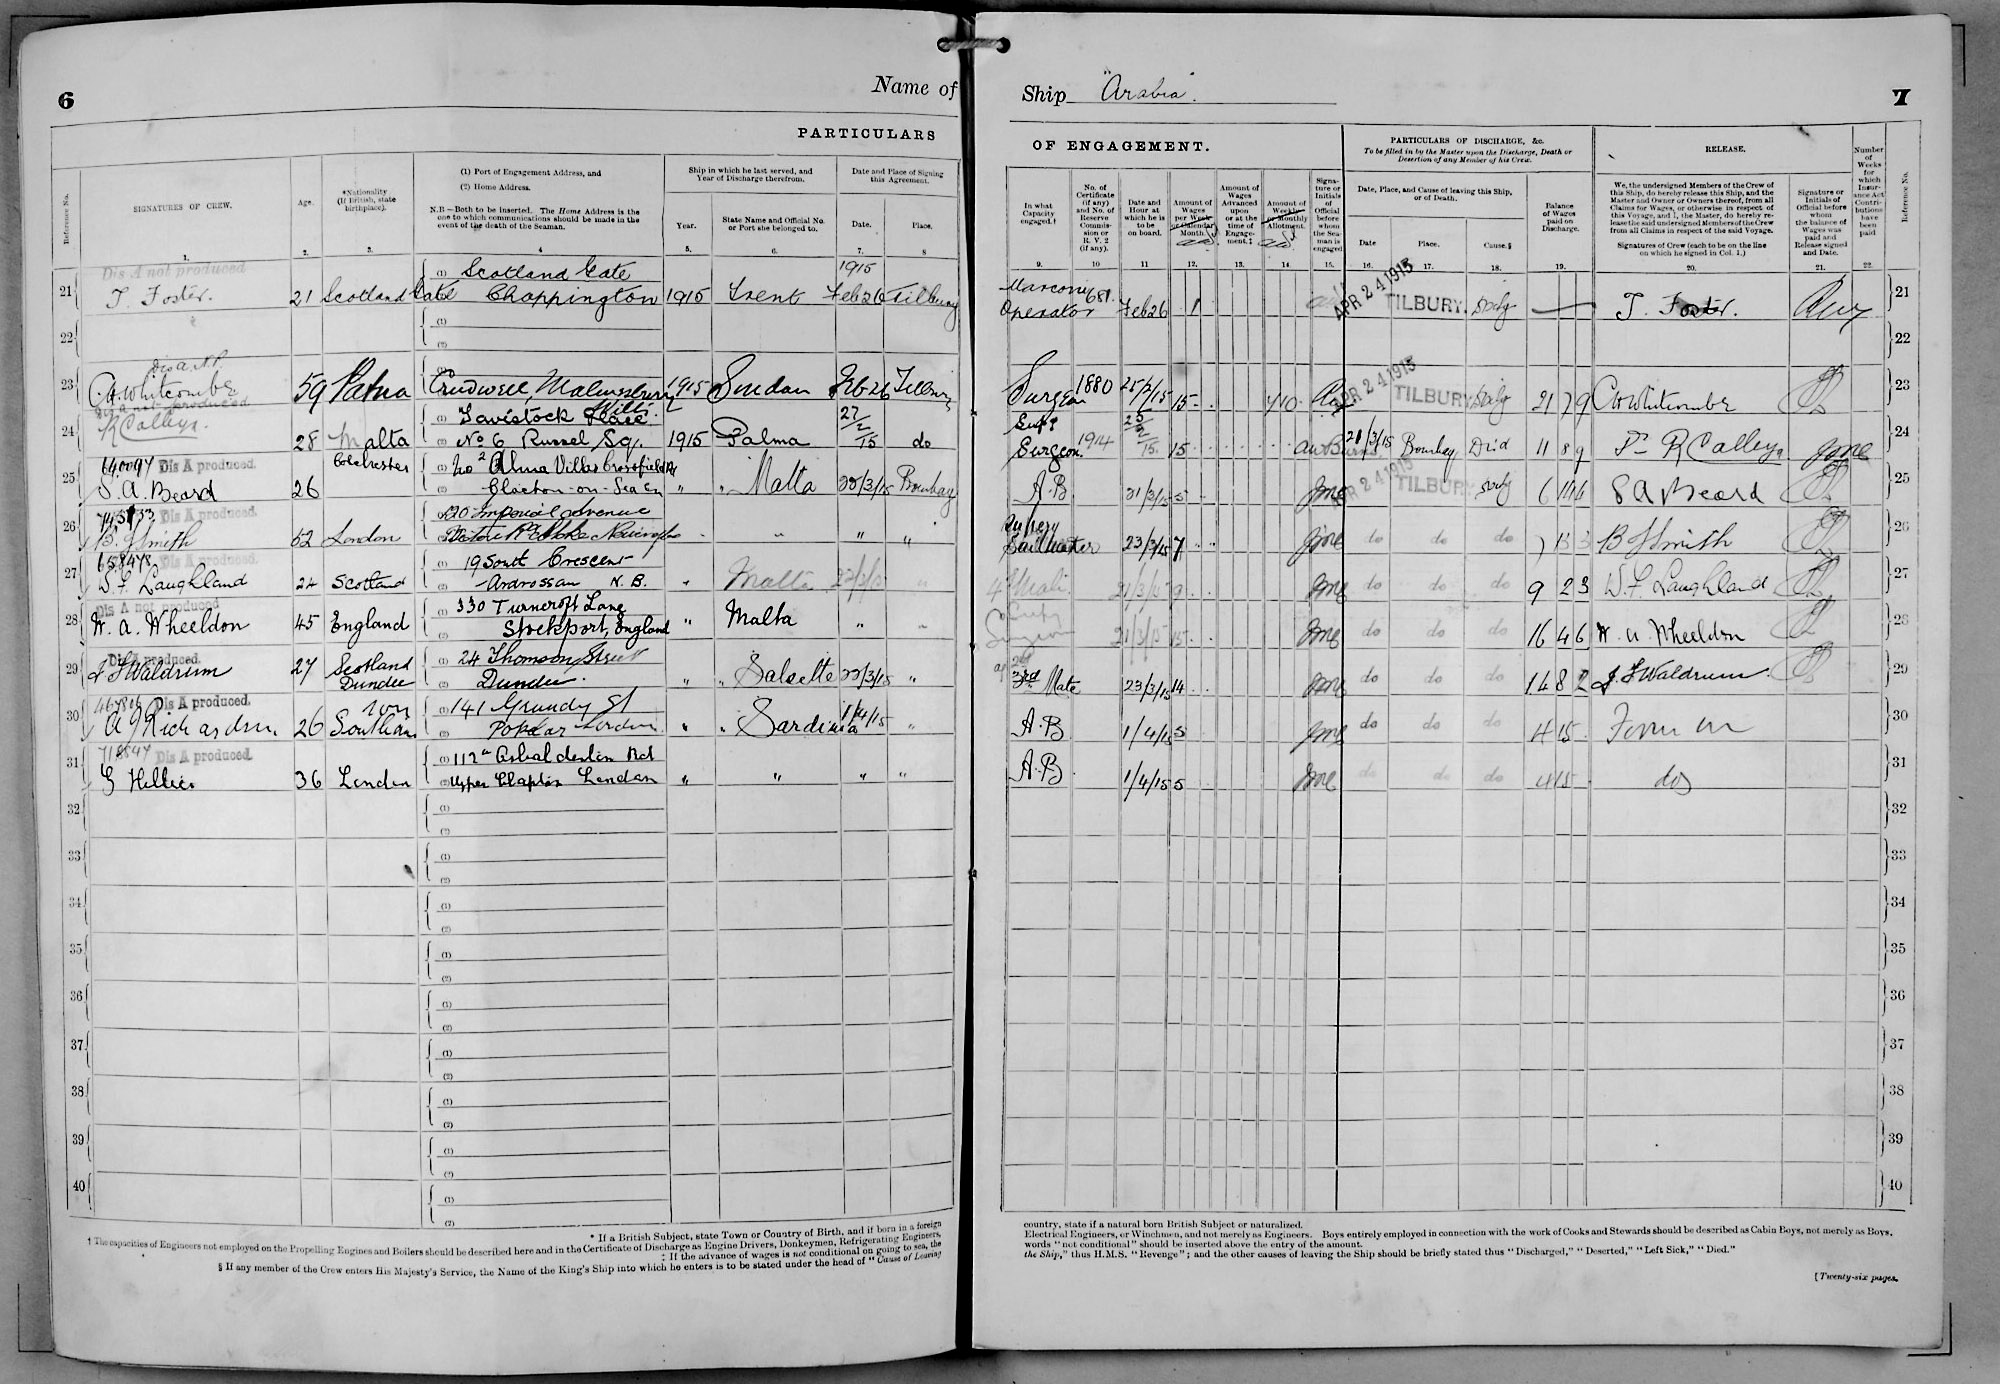 6
Name of
Ship "Arabia".
7
PARTICULARS
OF ENGAGEMENT.
PARTICULARS OF DISCHARGE, &c.
To be filled in by the Master upon the Discharge, Death or
Desertion of any Member of his Crew.
RELEASE.
Number of Weeks for which Insurance Act Contributions have been paid
Reference No.
SIGNATURES OF CREW.
Age.
*Nationality (If British, state birthplace).
(1) Port of Engagement Address, and
(2) Home Address.
N.B—Both to be inserted. The Home Address is the
one to which communications should be made in the
event of the death of the Seaman.
Ship in which he last served, and
Year of Discharge therefrom.
Year.
State Name and Official No.
or Port she belonged to.
Date and Place of Signing
this Agreement.
Date.
Place.
In what Capacity engaged.†
No. of Certificate (if any) and No. of Reserve Commission or R. V. 2 (if any).
Date and Hour at which he is to be on board.
Amount of Wages per Week or Calendar Month.
Amount of Wages Advanced upon or at the time of Engagement.‡
Amount of Weekly or Monthly Allotment.
Signature or Initials of Official before whom the Seaman is engaged
Date, Place, and Cause of leaving this Ship,
or of Death.
Date
Place.
Cause.§
Balance of Wages paid on Discharge.
We, the undersigned Members of the Crew of
this Ship, do hereby release this Ship, and the
Master and Owner or Owners thereof, from all
Claims for Wages, or otherwise in respect of
this Voyage, and I, the Master, do hereby re-
lease the said undersigned Members of the Crew
from all Claims in respect of the said Voyage.
Signatures of Crew (each to be on the line
on which he signed in Col. 1.)
Signature or Initials of Official before whom the balance of Wages was paid and Release signed and Date.
Reference No.
1. 2. 3. 4 5. 6. 7. 8
9. 10 11 12. 13. 14. 15. 16. 17. 18. 19. 20. 21. 22.
Dis A not produced
21 T. Foster. 21 Scotland Gate (1) Scotland Gate
(2) Choppington 1915 Trent 1915 Feb 26 Tilbury
Marconi Operator 681. Feb 26 1 APR 24 1915 TILBURY. T. Foster. 21
22 (1) (2) 22
23 C. H. Whitcombe 59 Patna Crudwell, Malmesbury Wilts. 1915 Sudan Feb 26 Tilbury
Surgeon 1880 15 APR 24 1915 TILBURY 21 7 9 CH Whitcombe 23
Dis A not produced
24 R Calleya. 28 Malta Tavistock Place
(2) No 6 Russel Sq. 1915 Palma 27/2/15 do
Surgeon. 1914 15 Bombay 11 8 9 R Calleya 24
640094 Dis A produced.
25 S. A. Beard 26 Colchester No 2 Alma Villas
(2) Clacton-on-Sea " " Malta 22/3/15 Bombay
A.B 21/3/15 5 APR 24 1915 TILBURY S A Beard 25
Dis A produced.
26 B. J Smith 52 London (1) 20 Imperial Avenue
" "
Sailmaker 23/3/15 7 do do do B J Smith 26
658478 Dis A produced.
27 W. F. Laughland 24 Scotland 19 South Crescent
Ardrossan N.B. " Malta 22/3/15
21/3/15 9 do do do 9 2 3 W. F. Laughland 27
Dis A not produced
28 W. A. Wheeldon 45 England (1) 330 Turncroft Lane
(2) Stockport, England " Malta " "
Surgeon 21/3/15 15 do do do 16 4 6 W. A. Wheeldon 28
Dis A produced.
29 J F Waldrum 27 Scotland Dundee (1) 24 Thomson Street
(2) Dundee. " " Salsette 22/3/15 "
3rd Mate 23/3/15 14 do do do 14 8 2 J. F Waldrum. 29
Dis A produced.
30 A J Richardson. 26 Southampton (1) 141 Grundy St
(2) Poplar London. " " Sardinia 1/4/15 "
A.B 1/4/15 5 do do do 4 15 30
718547 Dis A produced.
31 G Hillier 36 London (1) 112a
(2) Upper Clapton London " " " "
A.B. 1/4/15 5 do do do 4 15 do 31
32 (1) (2) 32
33 (1) (2) 33
34 (1) (2) 34
35 (1) (2) 35
36 (1) (2) 36
37 (1) (2) 37
38 (1) (2) 38
39 (1) (2) 39
40 (1) (2) 40
* If a British Subject, state Town or Country of Birth, and if born in a foreign
country, state if a natural born British Subject or naturalized.
† The capacities of Engineers not employed on the Propelling Engines and Boilers should be described here and in the Certificate of Discharge as Engine Drivers, Donkeymen, Refrigerating Engineers,
Electrical Engineers, or Winchmen, and not merely as Engineers. Boys entirely employed in connection with the work of Cooks and Stewards should be described as Cabin Boys, not merely as Boys,
‡ If the advance of wages is not conditional on going to sea, the
words "not conditional" should be inserted above the entry of the amount.
§ If any member of the Crew enters His Majesty's Service, the Name of the King's Ship into which he enters is to be stated under the head of "Cause of Leaving
the Ship," thus H.M.S. "Revenge"; and the other causes of leaving the Ship should be briefly stated thus "Discharged," "Deserted," "Left Sick," "Died."
[Twenty-six pages.